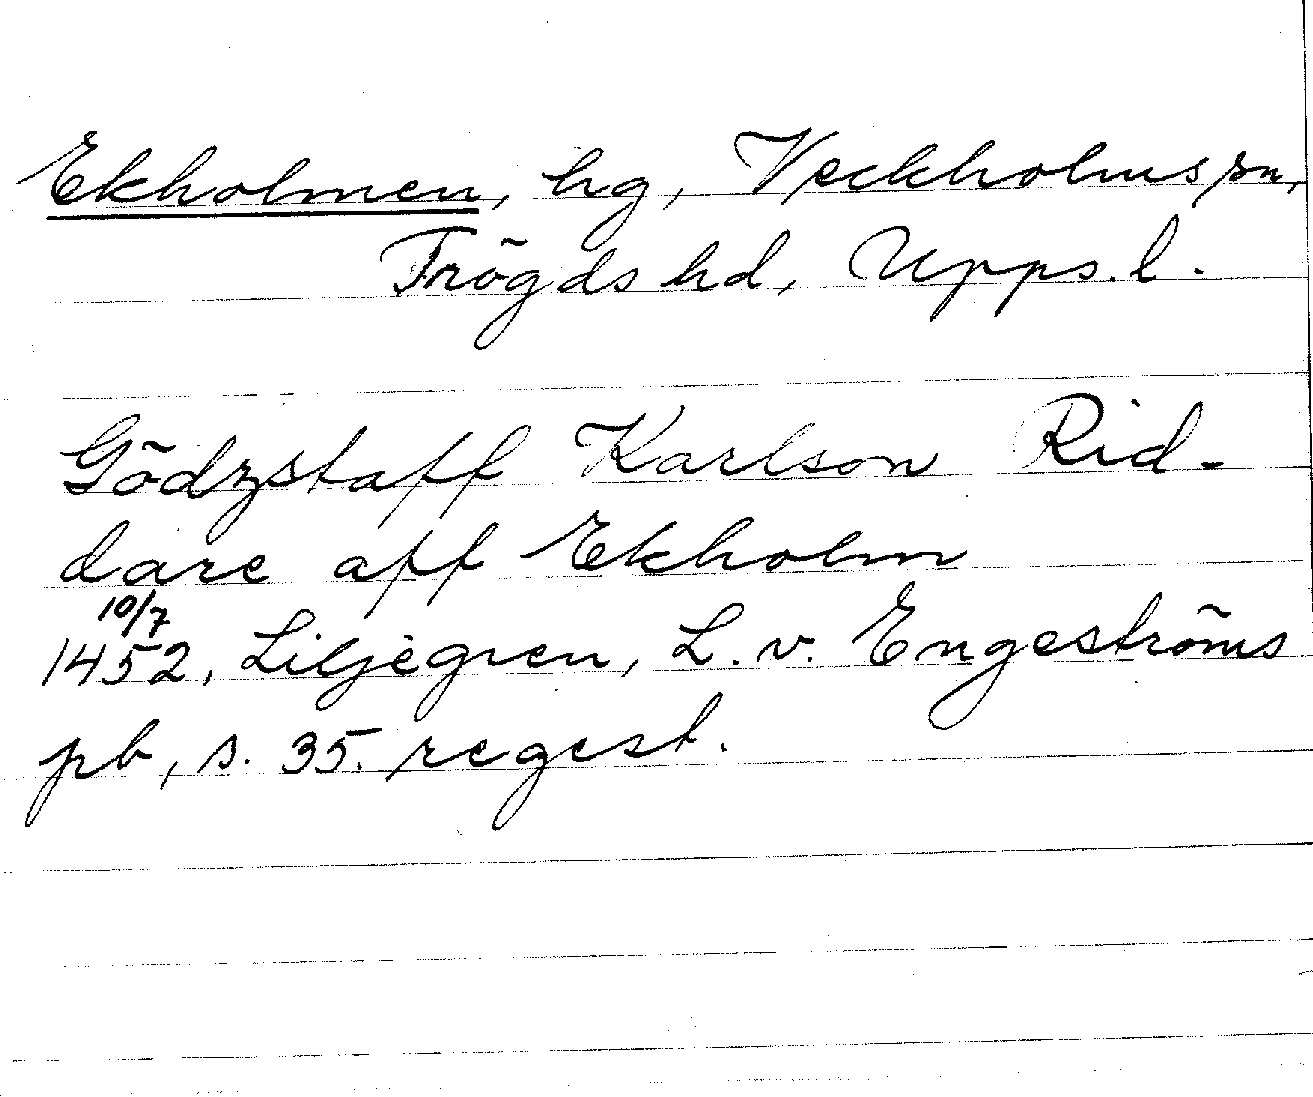 Ekholmen, hg, Veckholms sn,
Trögds hd, Upps. l.
Gödzstaff Karlson Rid-
dare aff Ekholm
10/7
1452, Liljegren, L. v. Engeströms
pb, s. 35. regest.